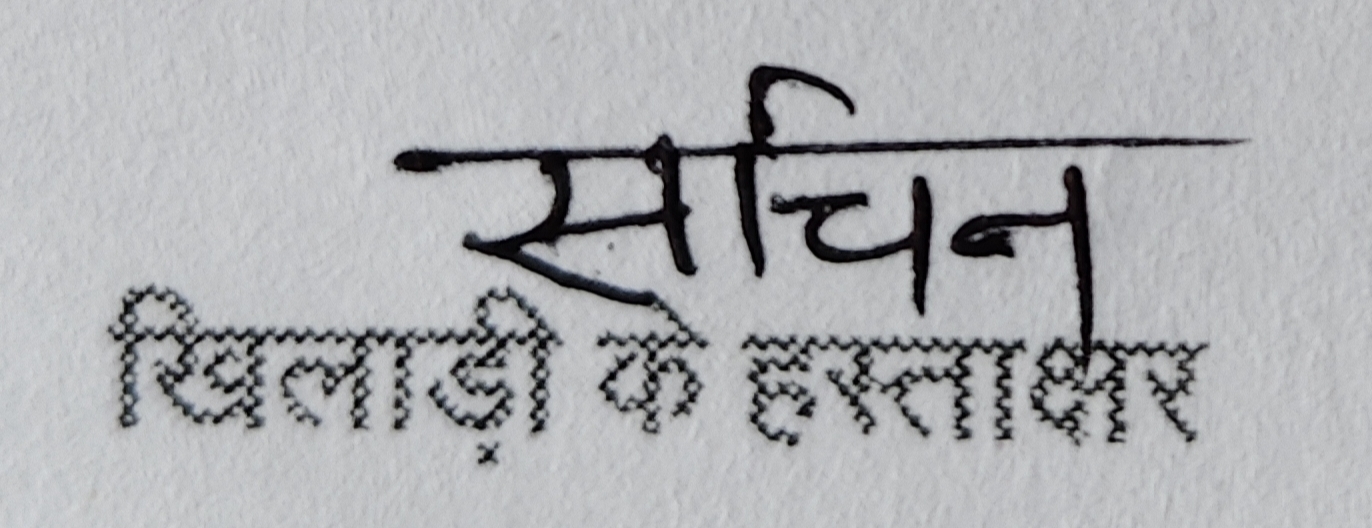 सचिन
खिलाड़ी के हस्ताक्षर